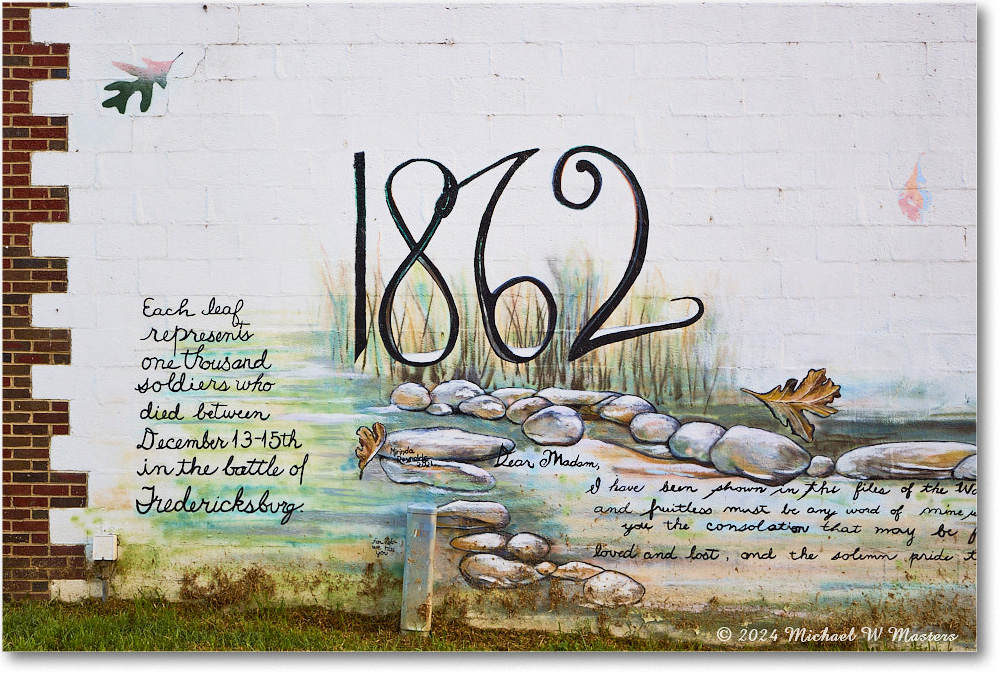 1862
Each leaf
represents
one thousand
soldiers who
died between
December 13-15th
in the battle of
Fredericksburg.
Dear Madam,
I have been shown in the files of the Wa
and fruitless must be any word of mine
you the consolation that may be f
loved and lost, and the solemn pride t
we miss
you
© 2024 Michael W Masters